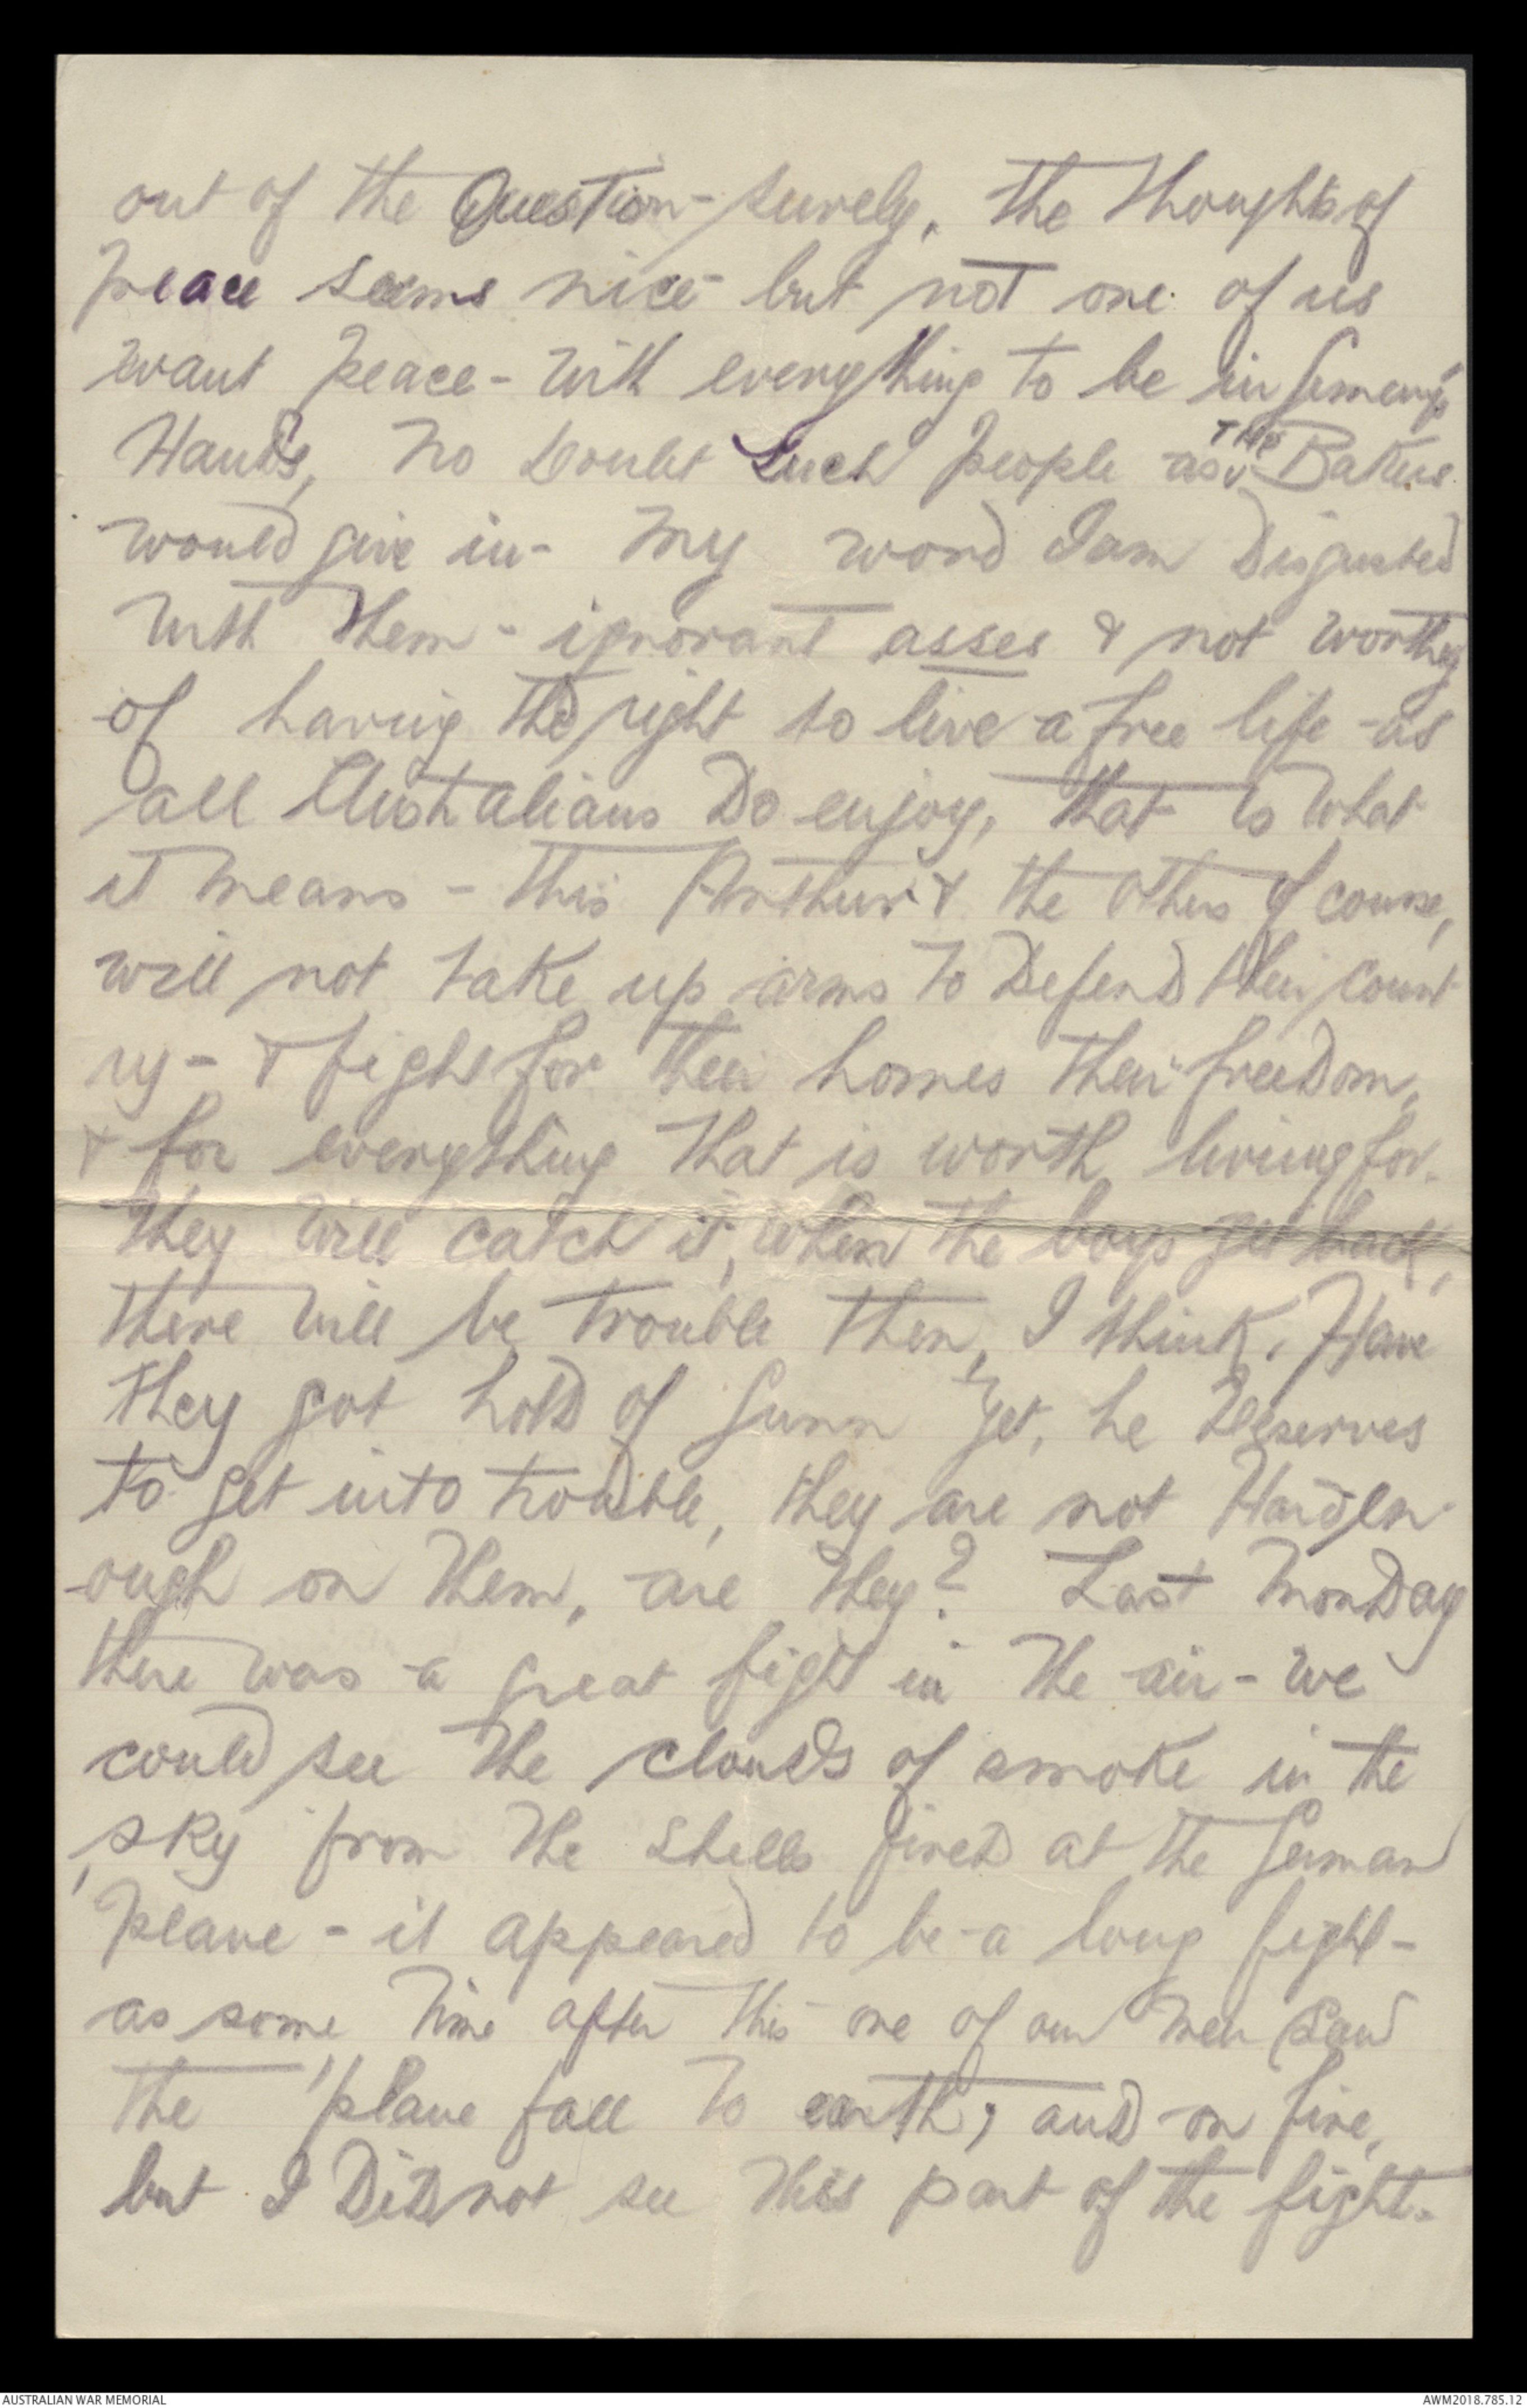 out of the Question - surely. The thoughts of
peace seems nice - but not one of us
want peace - with everything to be in Germany's
Hands, No Doubt such people as the Bakers
would give in - My word I am Disgusted
with them - ignorant asses & not worthy
of having the right to live a free life - as
all Australians Do enjoy, that is what
it means - this Arthur & the others of course,
will not take up arms to Defend their count
ry - & fight for their homes their freedom,
& for everything that is worth living for.
They will catch it, when the boys get back,
there will be trouble then, I think. Have
they got hold of Gunn yet, he Deserves
to get into trouble, they are not Hard en-
ough on them, are they? Last Monday
there was a great fight in the air - we
could see the clouds of smoke in the
sky from the shells fired at the German
plane - it appeared to be a long fight -
as some time after this one of our men saw
the 'plane fall to earth; and on fire,
but I Did not see this part of the fight.
AUSTRALIAN WAR MEMORIAL
AWM2018.785.12